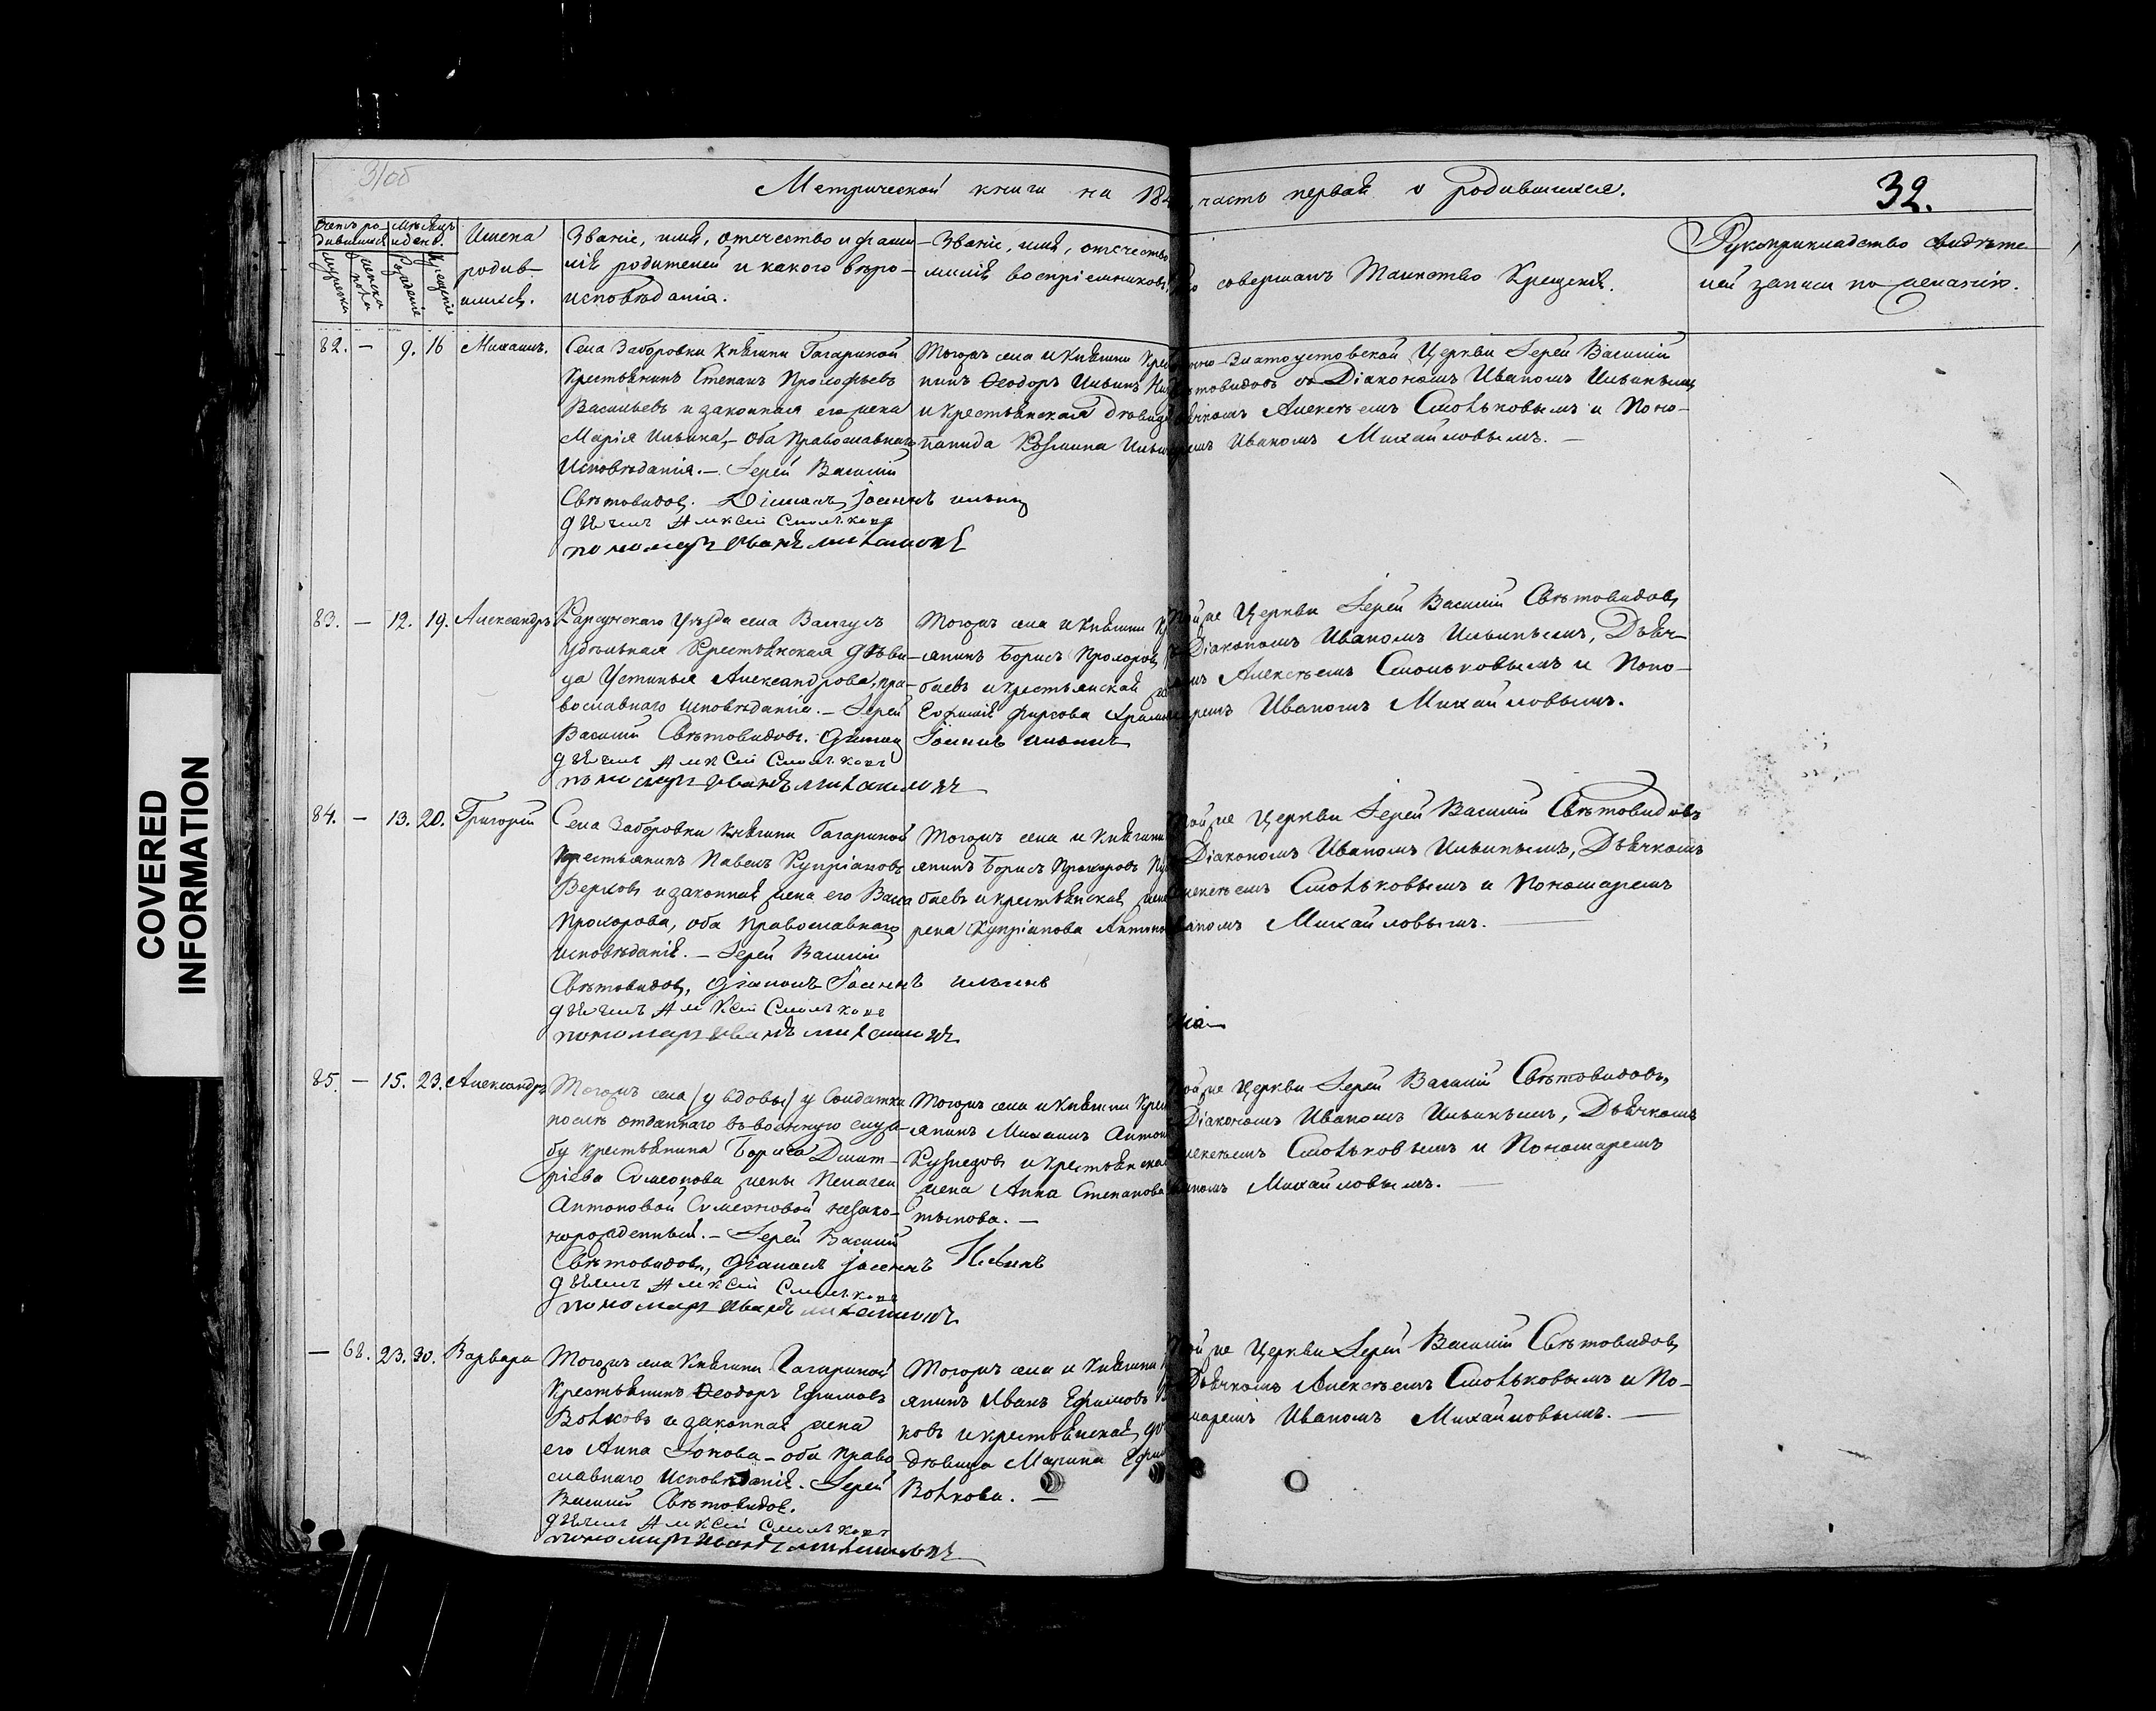 31об
Метрической книги на 18 часть первая о родившихся.
32.
Счетъ ро-
дившихся
Мѣсяцъ
и день.
мужеска
женска
пола
Рожденіе
Крещеніе
Имена
родив-
шихся.
Званіе, имя, отечество и фами-
лія родителей и какого вѣро-
исповѣданія.
Званіе, имя, отечество
милія воспріемниковъ
совершалъ Таинство Крещенія.
Рукоприкладство свидѣте-
лей записи по желанію.
82. — 9. 16 Михаилъ.
Села Заборовки Княгини Гагариной
Крестьянинъ Стефанъ Прокофьевъ
Васильевъ и законная его жена
Марія Ильина, – оба Православнаго
Исповѣданія. – Іерей Василій
Свѣтовидовъ. Діаконъ Іоаннъ Ильинъ
дьячекъ Алексей Смольковъ
пономарь Иванъ Михайловъ
Тогожъ села и Княгини Крес
нинъ Ѳеодоръ Ильинъ
и крестьянская дѣвица
Козмина Ильи
Златоустовской Церкви Іерей Василій
товидовъ съ Діакономъ Иваномъ Ильинымъ
ячкомъ Алексѣемъ Смольковымъ и Поно-
Иваномъ Михайловымъ. —
83. — 12. 19. Александръ
Карсунскаго Уѣзда села
Удѣльная Крестьянская дѣви-
ца Устинья Александрова, пра-
вославнаго Исповѣданія. – Іерей
Василій Свѣтовидовъ. Діаконъ Іоаннъ Ильинъ
дьячекъ Алексей Смольковъ
пономарь Иванъ Михайловъ
Тогожъ села и Княгини Кр
янинъ Борисъ Прохоровъ
баевъ и крестьянская
Евфимія Фирсова
Церкви Іерей Василій Свѣтовидовъ
Діакономъ Иваномъ Ильинымъ, Дьяч-
Алексѣемъ Смольковымъ и Поно-
Иваномъ Михайловымъ.
84. — 13. 20. Григорій
Села Заборовки Княгини Гагариной
Крестьянинъ Павелъ Купріановъ
и законная жена его Васса
Прохорова, оба Православнаго
исповѣданія. – Іерей Василій
Свѣтовидовъ, Діаконъ Іоаннъ Ильинъ
дьячекъ Алексей Смольковъ
пономарь Иванъ Михайловъ
Тогожъ села и Княгини
янинъ Борисъ Прохоровъ
баевъ и крестьянская жена
Купріанова
Церкви Іерей Василій Свѣтовидовъ
Діакономъ Иваномъ Ильинымъ, Дьячкомъ
Смольковымъ и Пономаремъ
Михайловымъ.
85. — 15. 23. Александръ
Тогожъ села (у вдовы) у Солдатки
послѣ отданнаго въ военную служ-
бу крестьянина Бориса Дмит-
ріева Симеонова жены Пелагеи
Антоновой Симеоновой незако-
норожденный. – Іерей Василій
Свѣтовидовъ, Діаконъ Іоаннъ Ильинъ
дьячекъ Алексей Смольковъ
пономарь Иванъ Михайловъ
Тогожъ села и Княгини Кре
янинъ Михаилъ Антон
Кузнецовъ и крестьянска
жена Анна Степанова
Церкви Іерей Василій Свѣтовидовъ,
Діакономъ Иваномъ Ильинымъ, Дьячкомъ
Смольковымъ и Пономаремъ
Михайловымъ. —
— 68. 23. 30. Варвара
Тогожъ села Княгини Гагариной
Крестьянинъ Ѳеодоръ Ефимовъ
Волковъ и законная жена
его Анна Іонова – оба Право
славнаго Исповѣданія. Іерей
Василій Свѣтовидовъ.
дьячекъ Алексей Смольковъ
пономарь Иванъ Михайловъ
Тогожъ села и Княгини
янинъ Иванъ Ефимовъ
ковъ и крестьянская
дѣвица Марина Ефи
Волкова. —
Церкви Іерей Василій Свѣтовидовъ
Дьячкомъ Алексѣемъ Смольковымъ и По-
маремъ Иваномъ Михайловымъ. —
COVERED
INFORMATION